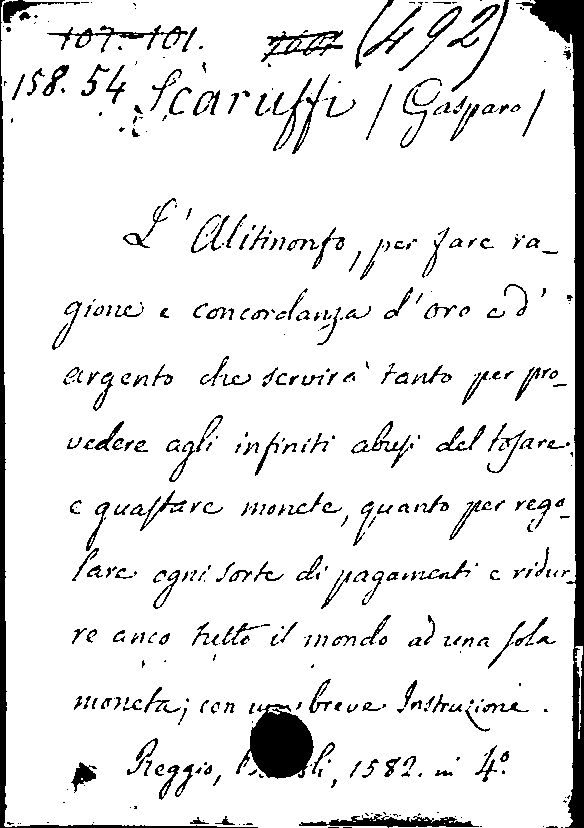 107.-101. (492)
158.54 Scaruffi / Gasparo /
L'Alitinonfo, per fare ra-
gione e concordanza d'oro e d'
argento che servirà tanto per pro-
vedere agli infiniti abusi del tosare
e guastare monete, quanto per rego-
lare ogni sorte di pagamenti e ridur-
re anco tutto il mondo ad una sola
moneta; con breve Instruzione.
Reggio, 1582. in 4.º